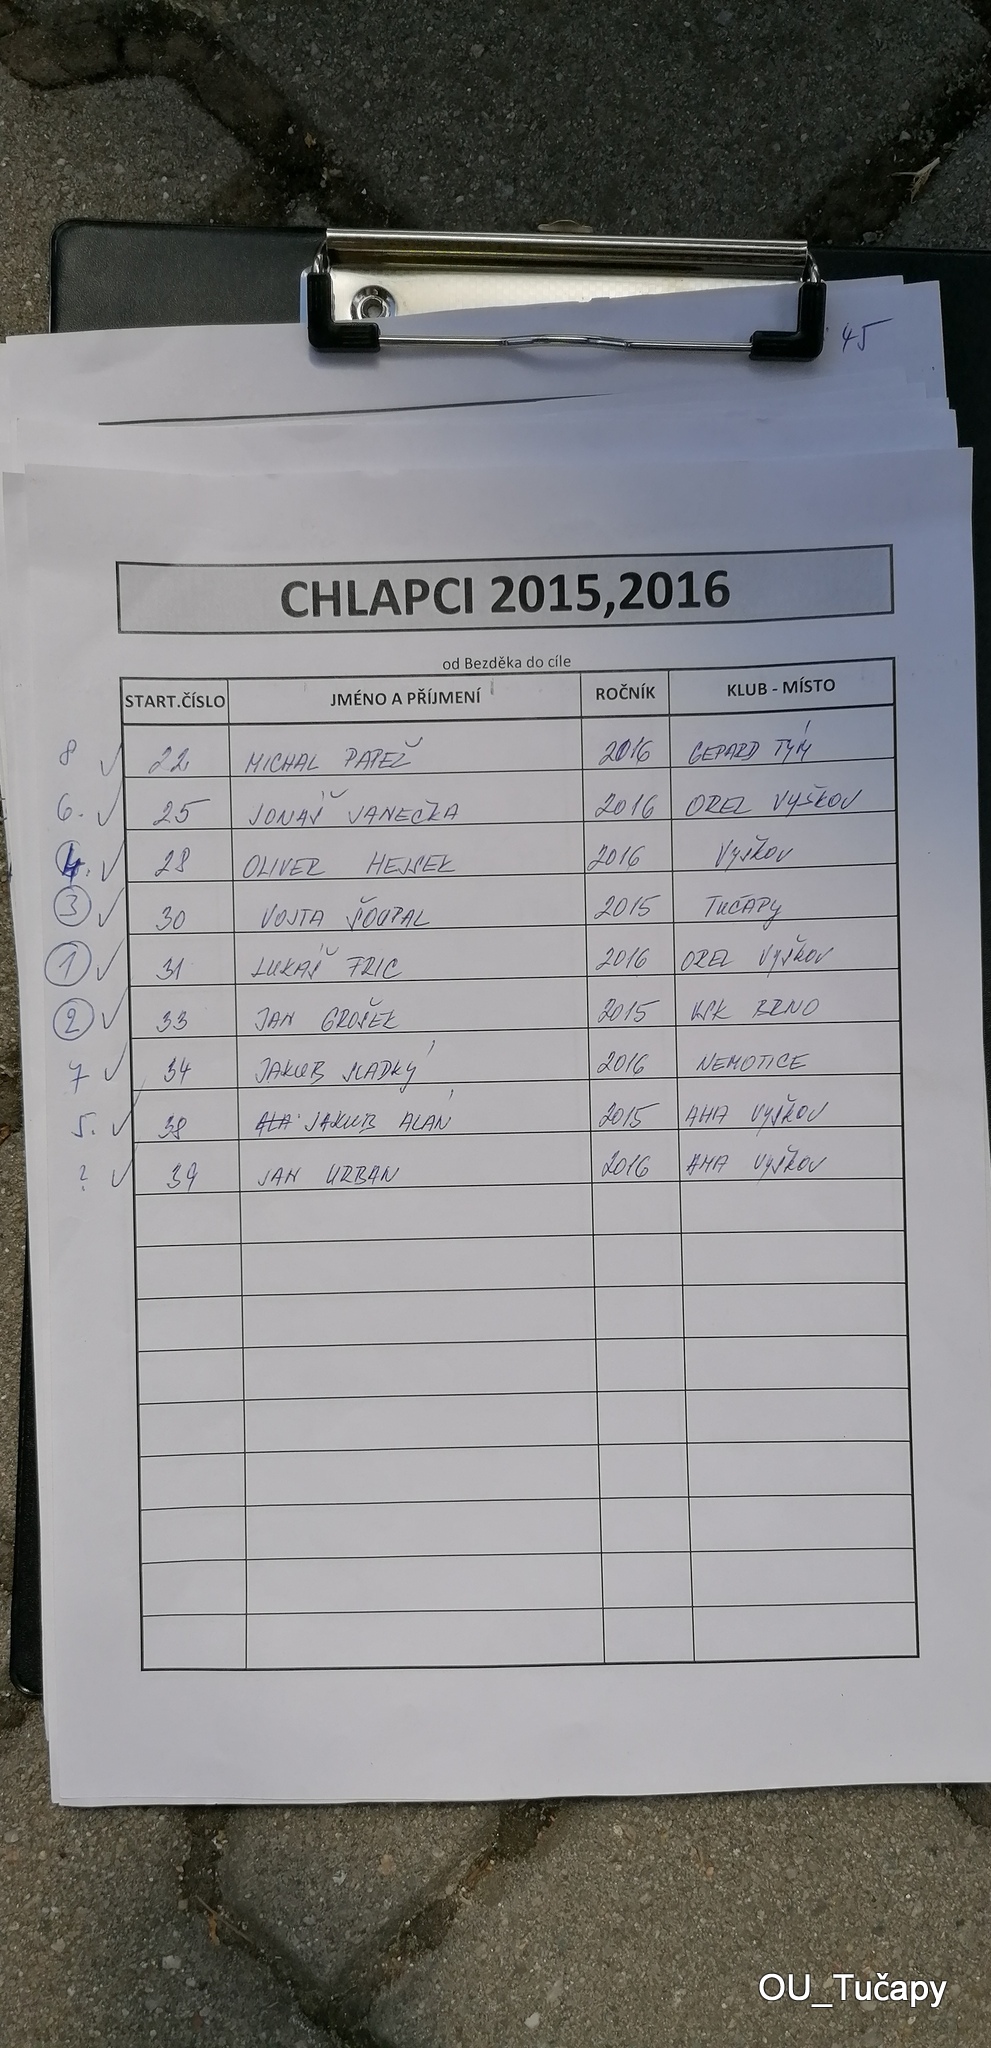 45
CHLAPCI 2015,2016
od Bezděka do cíle
START.ČÍSLO JMÉNO A PŘÍJMENÍ ROČNÍK KLUB - MÍSTO
8 ✓ 22 MICHAL PAPEŽ 2016 GEPARD TÝM
6. ✓ 25 JONÁŠ JANEČKA 2016 OREL VYŠKOV
4. ✓ 28 OLIVER HEJSEK 2016 VYŠKOV
3 ✓ 30 VOJTA ŠOUPAL 2015 TUČAPY
1 ✓ 31 LUKÁŠ FRIC 2016 OREL VYŠKOV
2 ✓ 33 JAN GROŠEK 2015 KSK BRNO
7 ✓ 34 JAKUB SLADKÝ 2016 NEMOTICE
5. ✓ 38 ALA JAKUB ALÁN 2015 AHA VYŠKOV
? ✓ 39 JAN URBAN 2016 AHA VYŠKOV
OU_Tučapy